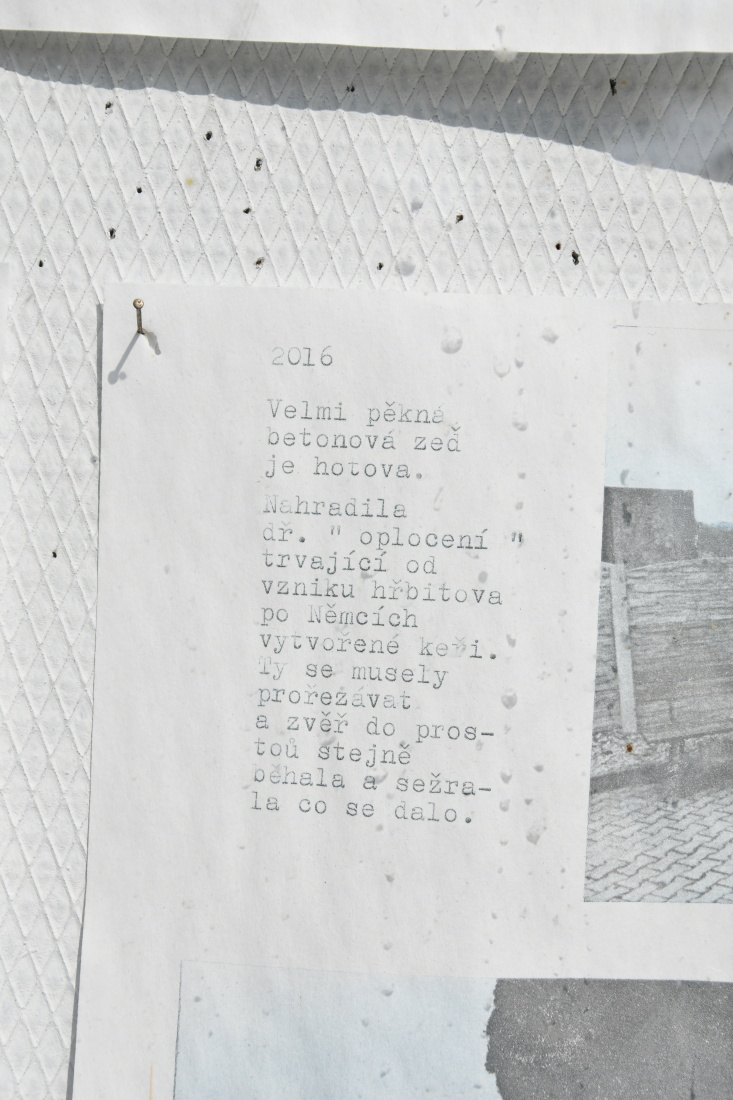 2016
Velmi pěkná
betonová zeď
je hotova.
Nahradila
dř. " oplocení "
trvající od
vzniku hřbitova
po Němcích
vytvořené keři.
Ty se musely
prořezávat
a zvěř do pros-
toů stejně
běhala a sežra-
la co se dalo.